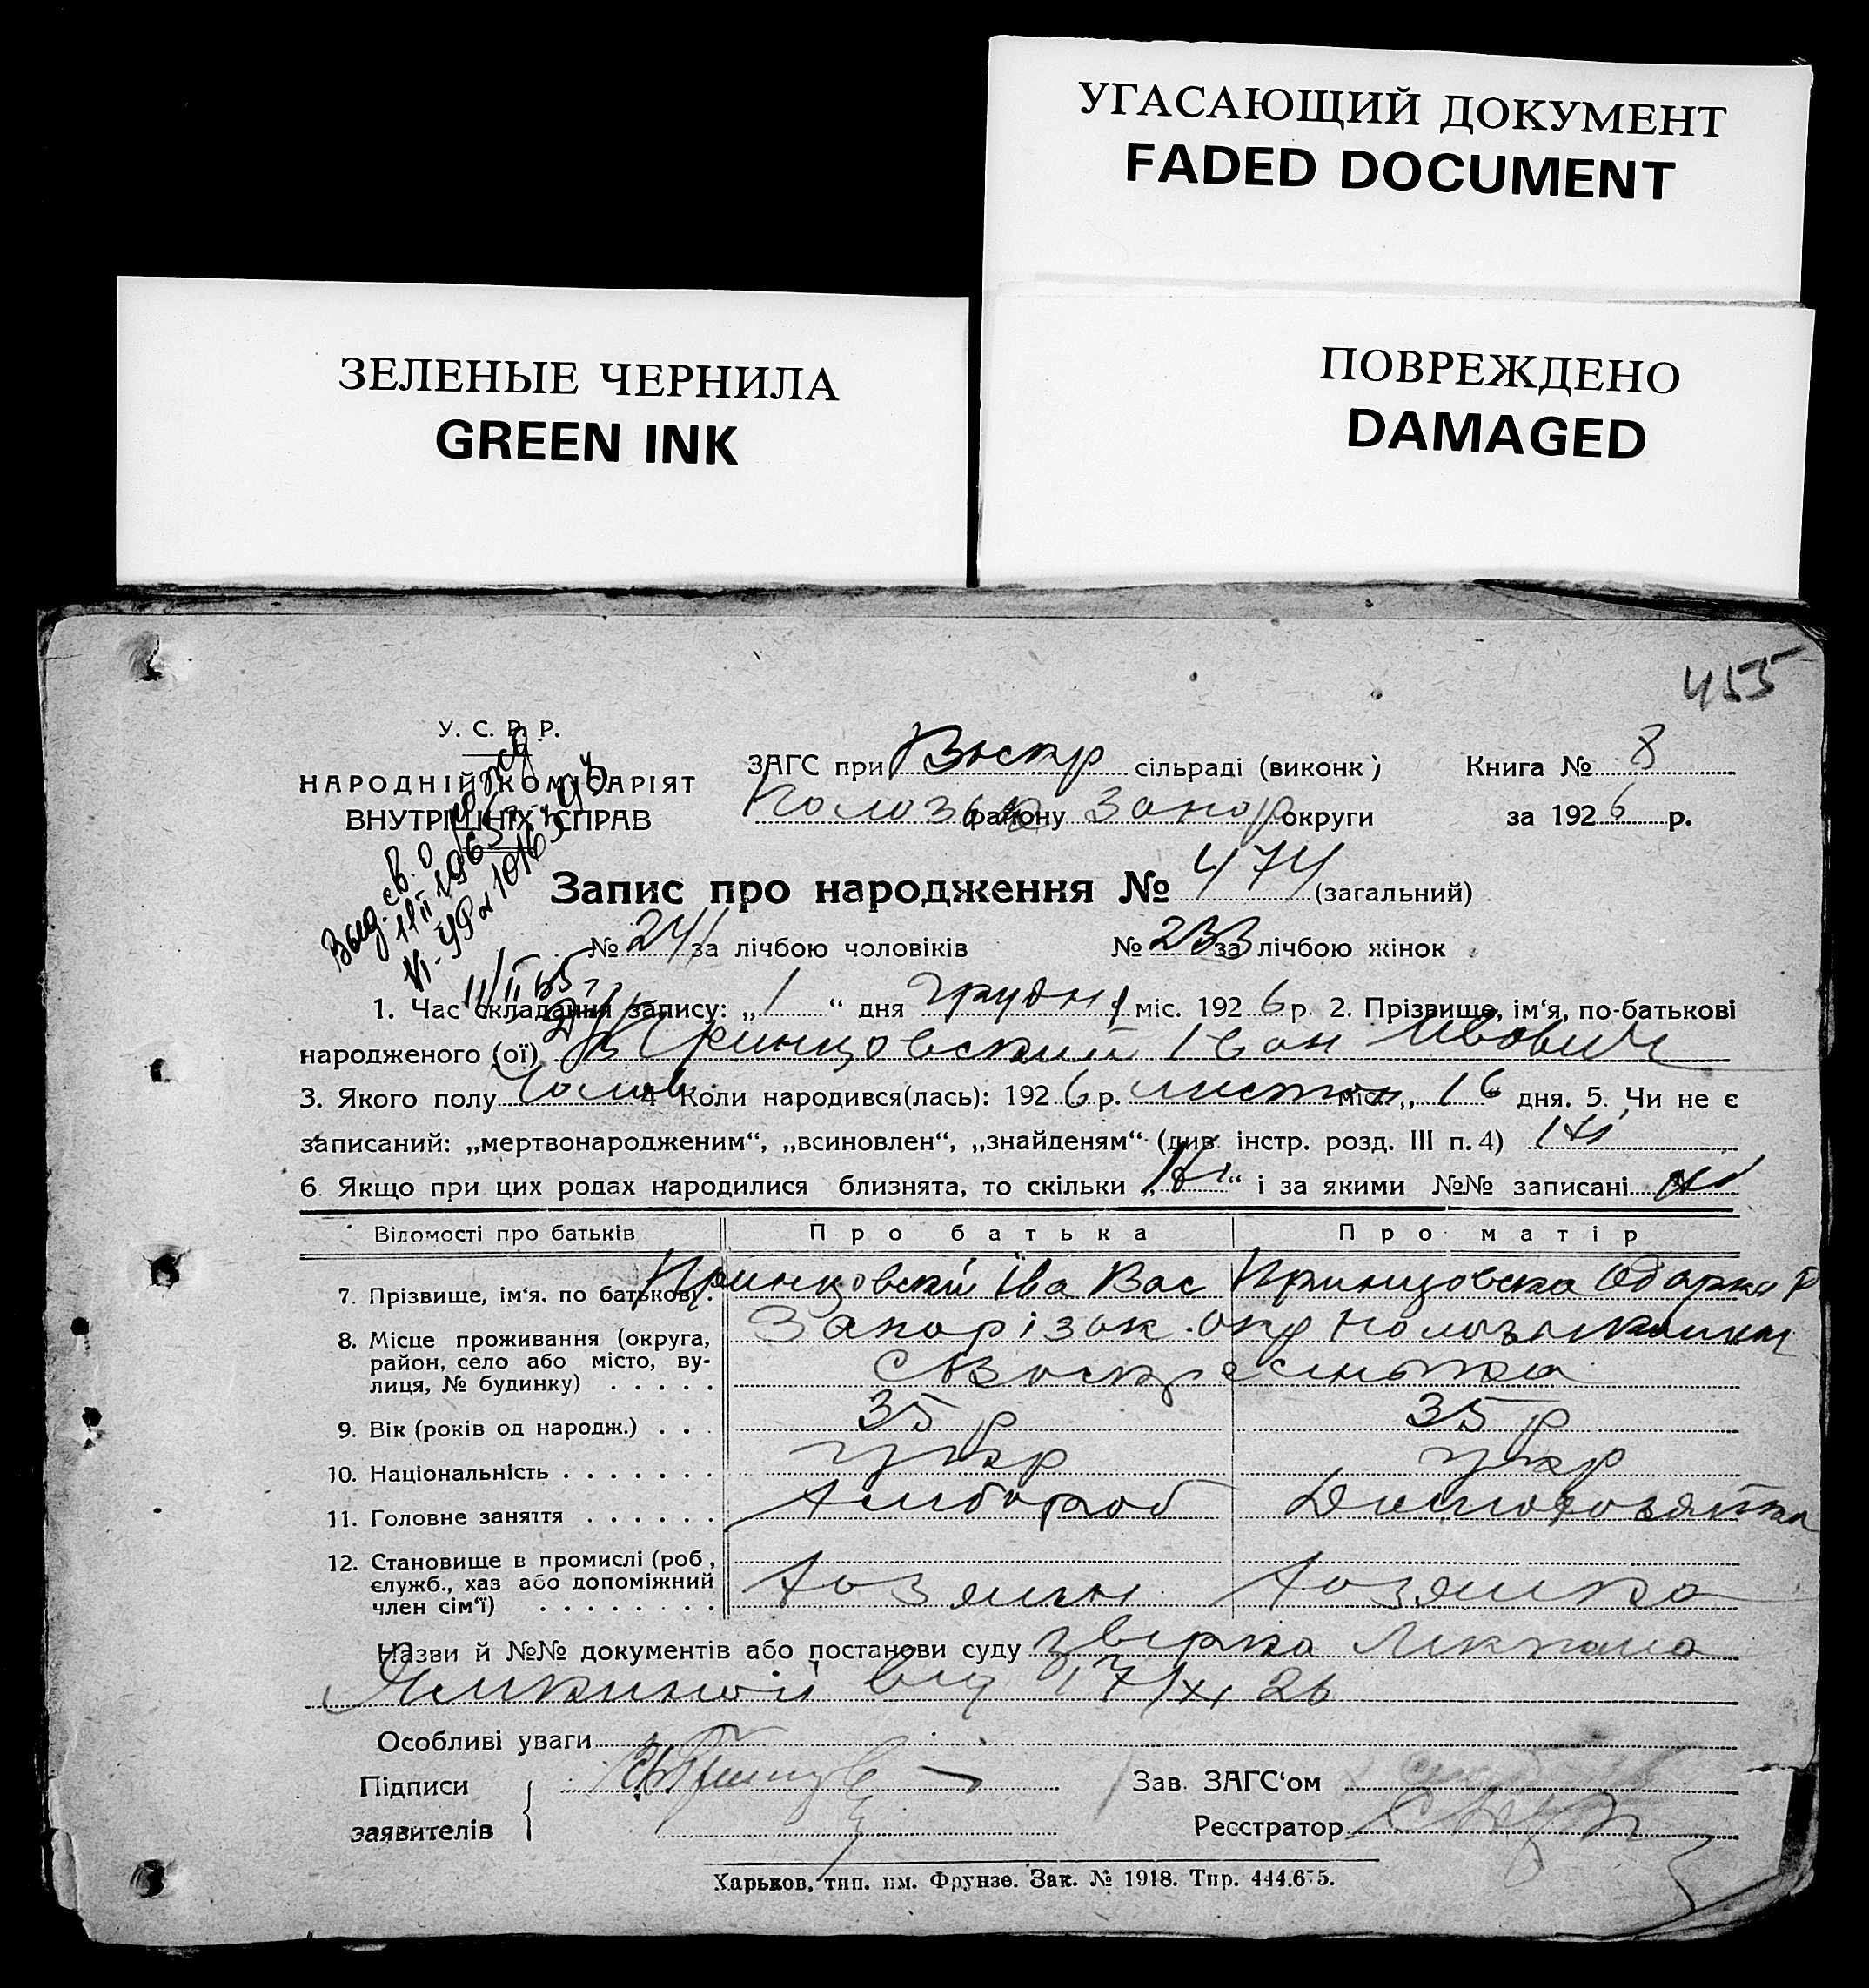 УГАСАЮЩИЙ ДОКУМЕНТ
FADED DOCUMENT
ЗЕЛЕНЫЕ ЧЕРНИЛА
GREEN INK
ПОВРЕЖДЕНО
DAMAGED
455
У. С. Р. Р.
НАРОДНІЙ КОМІСАРІЯТ
ВНУТРІШНІХ СПРАВ
ЗАГС при Воскр сільраді (виконк.)
району Запор округи
Книга № 8
за 1926 р.
Выд. св. о
11 II 1965
11/II 65 г
Запис про народження № 474 (загальний)
№ 241 за лічбою чоловіків № 233 за лічбою жінок
1. Час складання запису: „1“ дня грудня міс. 1926 р. 2. Прізвище, ім‘я, по-батькові
народженого (ої) Принцовский Іван Ивович
3. Якого полу Чолов 4 Коли народився(лась): 1926 р. листоп міс. „16 дня. 5. Чи не є
записаний: „мертвонародженим“, „всиновлен“, „знайденям“ (див. інстр. розд. III п. 4) Ні
6. Якщо при цих родах народилися близнята, то скільки „Ні“ і за якими №№ записані Ні
Відомості про батьків Про батька Про матір
7. Прізвище, ім‘я, по батькові . Принцовский Іва Вас Принцовска Одарка
8. Місце проживання (округа, район, село або місто, вулиця, № будинку) . . . . . Запорізьк. окр
с Воскресенька
9. Вік (років од народж.) . . . 35 р 35 р
10. Національність . . . . . . . укр укр
11. Головне заняття . . . . . . Хлібороб Домогозяйка
12. Становище в промислі (роб., служб., хаз або допоміжний член сім‘ї) . . . . . . . . Хозяин Хозяйка
Назви й №№ документів або постанови суду
від 17/XI 26
Особливі уваги
Підписи
заявителів
Зав. ЗАГС‘ом
Реєстратор
Харьков, тип. им. Фрунзе. Зак. № 1918. Тир. 444.675.